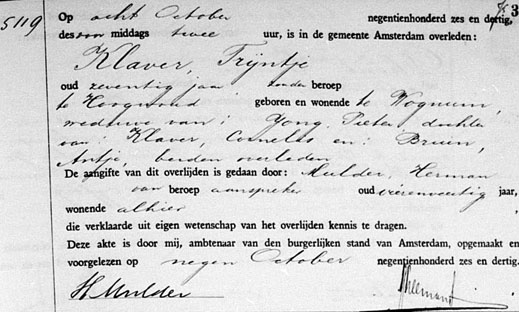 3
5119
Op acht October negentienhonderd zes en dertig,
des na middags twee uur, is in de gemeente Amsterdam overleden:
Klaver, Trijntje
oud zeventig jaar zonder beroep
te Hoogwoud geboren en wonende te Wognum,
weduwe van: Jong, Pieter, dochter
van: Klaver, Cornelis en: Bruin,
Antje, beiden overleden
De aangifte van dit overlijden is gedaan door: Mulder, Herman
van beroep aanspreker oud vierenveertig jaar,
wonende alhier
die verklaarde uit eigen wetenschap van het overlijden kennis te dragen.
Deze akte is door mij, ambtenaar van den burgerlijken stand van Amsterdam, opgemaakt en
voorgelezen op negen October negentienhonderd zes en dertig.
H Mulder